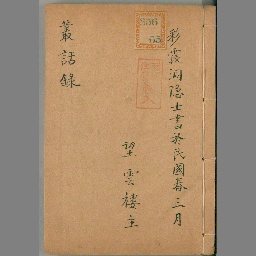 彩霞洞隐士書於民國春三月
望雲樓主
叢話錄
356
65